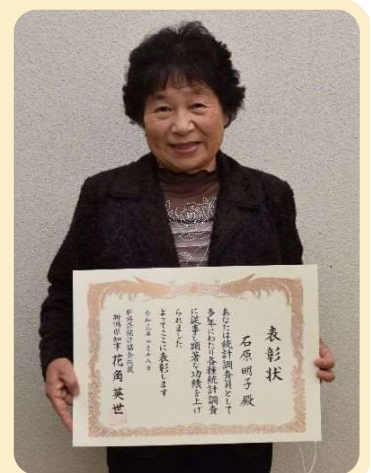 表彰状
石原明子殿
あなたは統計調査員として
多年にわたり各種統計調査
に従事し顕著な功績を上げ
られました
よってここに表彰します
新潟県統計協会総裁
新潟県知事 花角英世